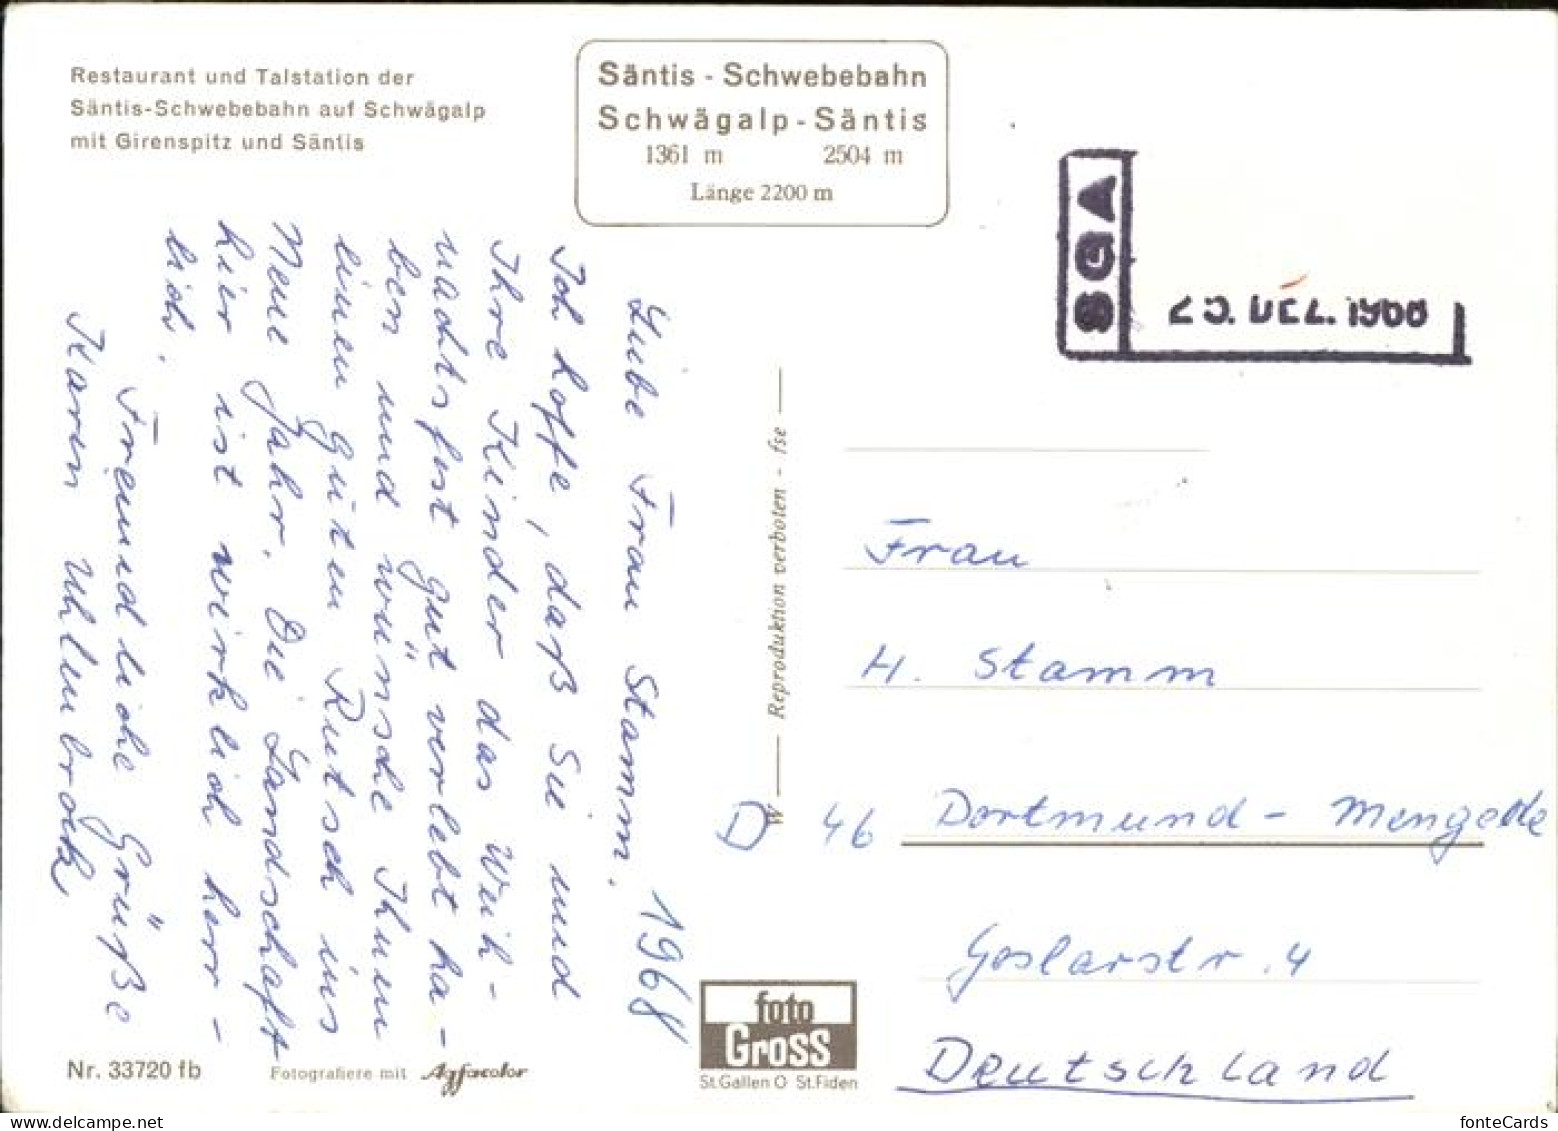 Restaurant und Talstation der
Säntis-Schwebebahn auf Schwägalp
mit Girenspitz und Säntis
Säntis - Schwebebahn
Schwägalp - Säntis
1361 m 2504 m
Länge 2200 m
SGA
23. DEZ. 1968
Liebe Frau Stamm.
Ich hoffe, daß Sie und
Ihre Kinder das Weih-
nachtsfest gut verlebt ha-
ben und wünsche Ihnen
einen guten Rutsch ins
Neue Jahr. Die Landschaft
hier ist wirklich herr-
lich.
Freundliche Grüße
Karin Uhlenbrock
1968
Reproduktion verboten - fse
Frau
H. Stamm
D 46 Dortmund - Mengede
Goslarstr. 4
Deutschland
foto
Gross
St.Gallen O St.Fiden
Nr. 33720 fb
Fotografiere mit Agfacolor
fonteCards